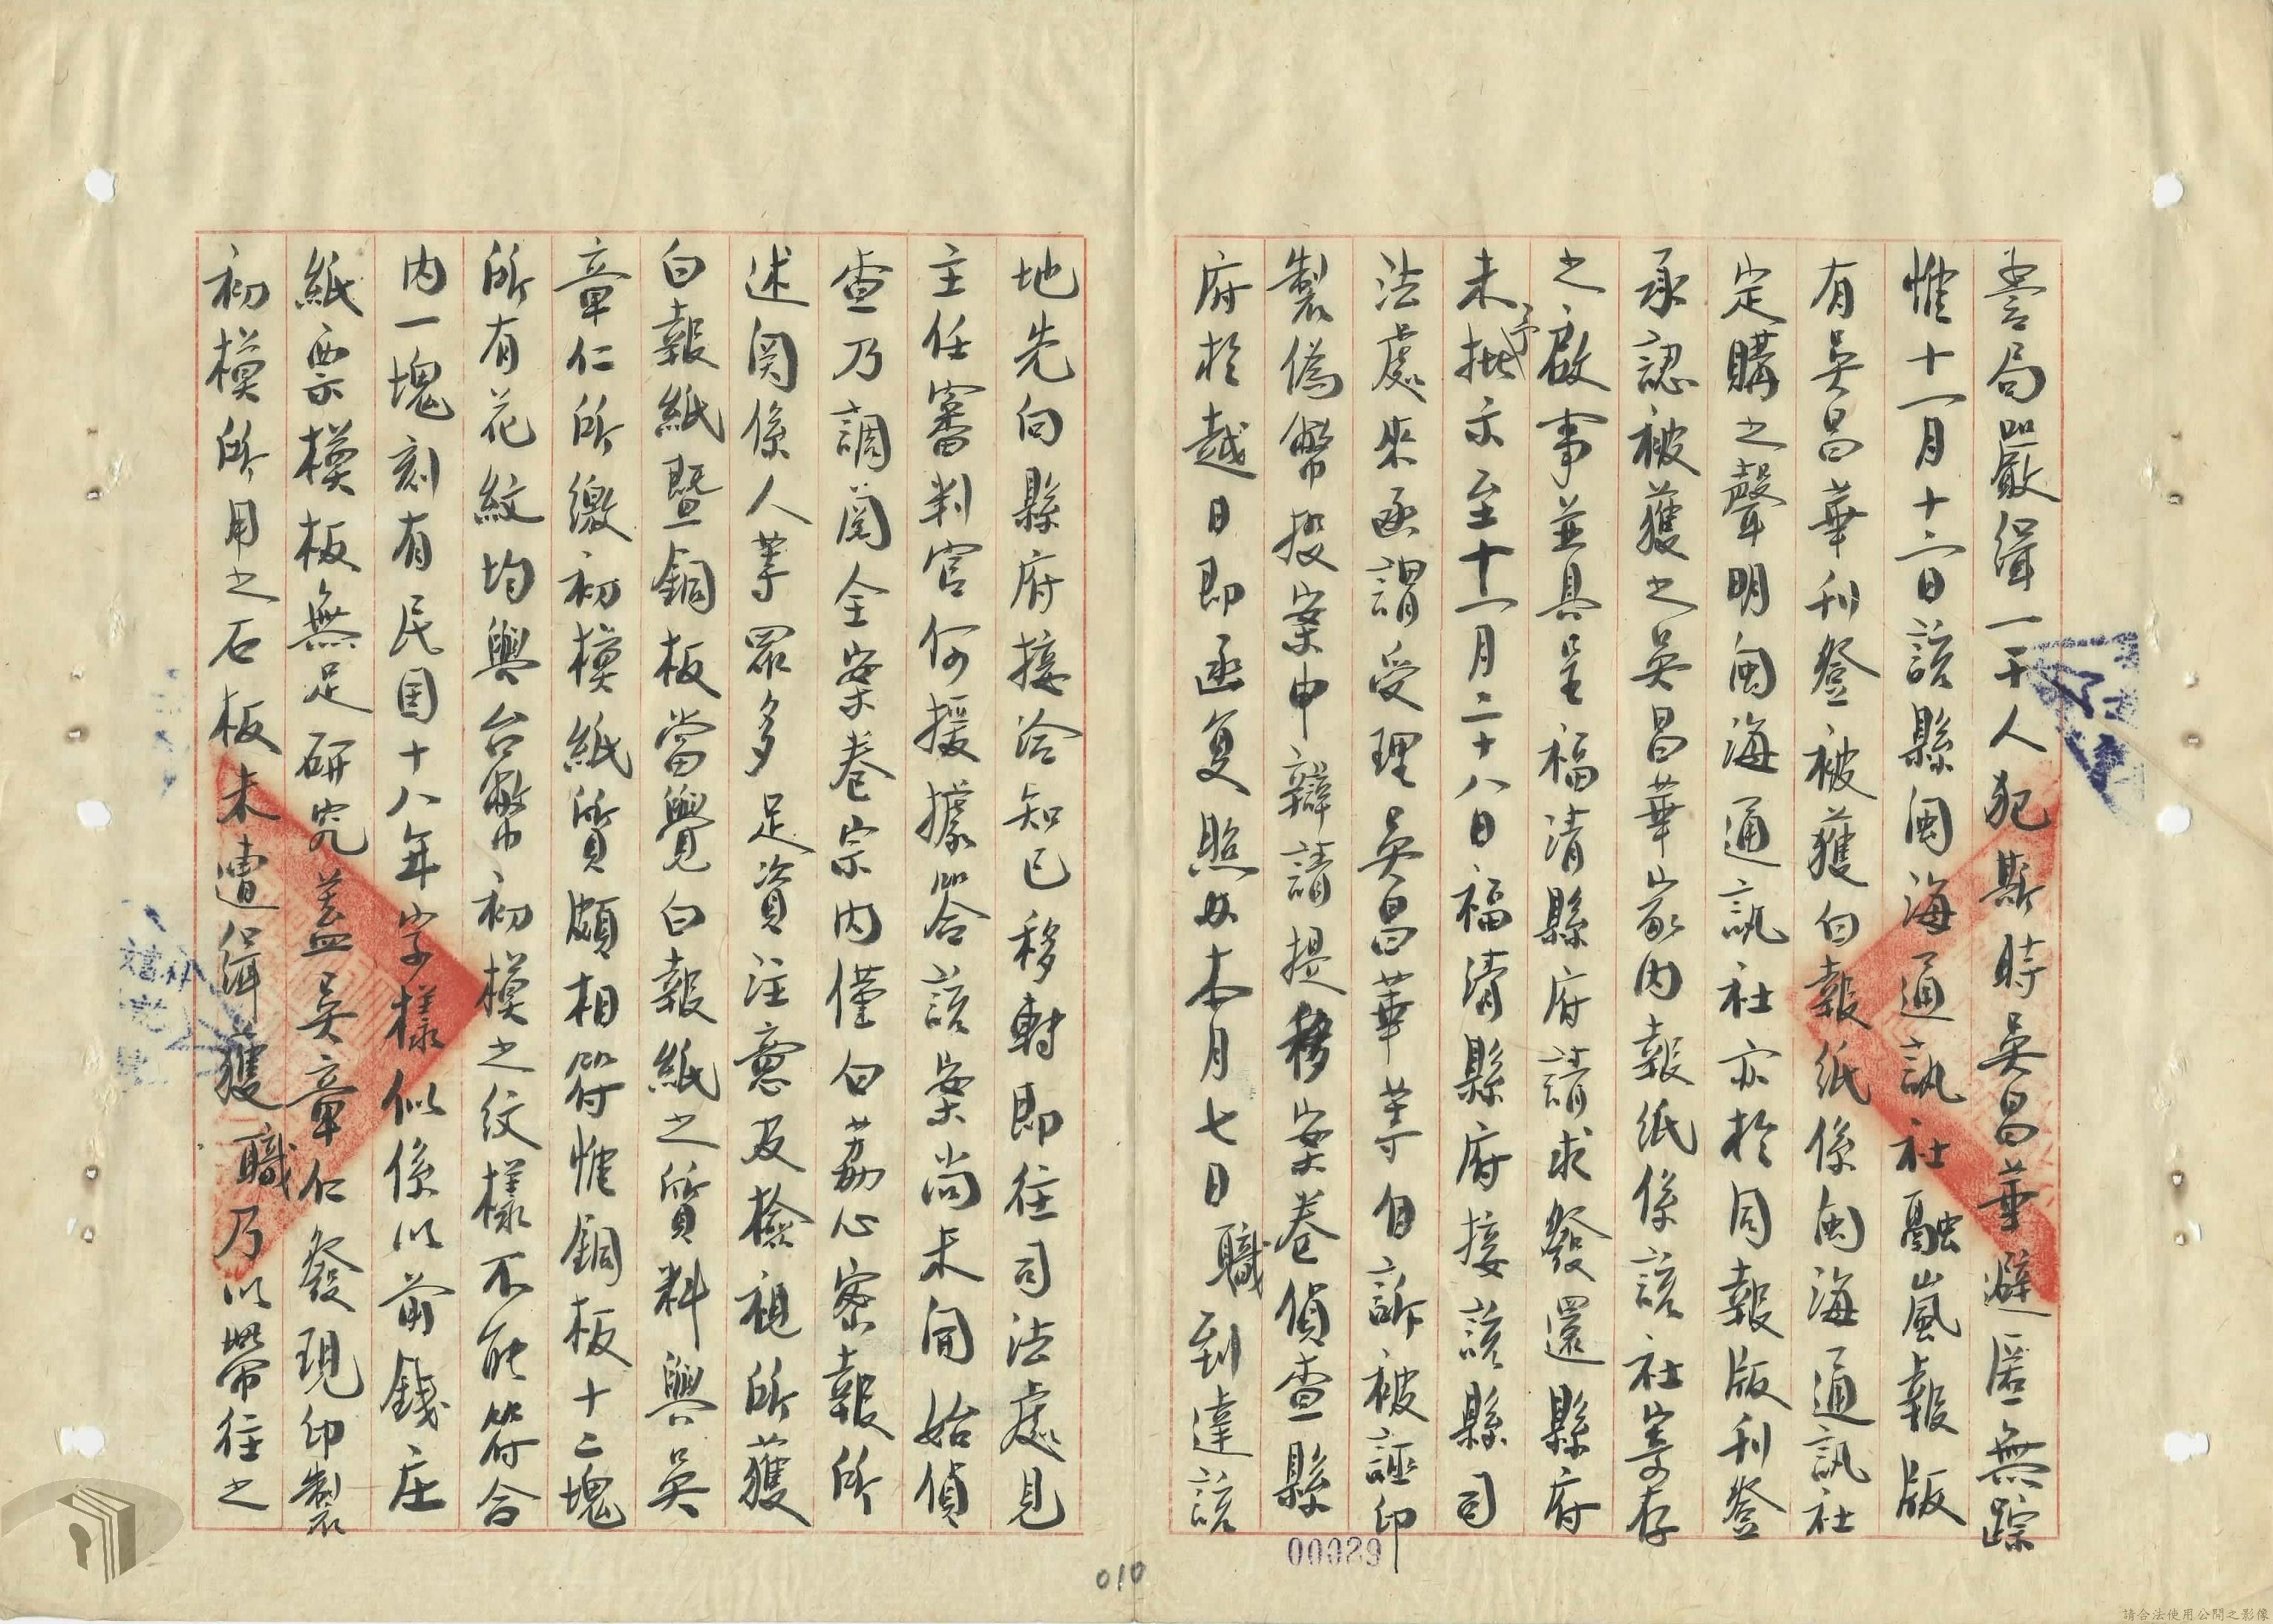 警局嚴緝一干人犯斯時吳昌華避匿無踪
惟十一月十二日該縣閩海通訊社融嵐報版
有吳昌華刊登被獲白報紙係閩海通訊社
定購之聲明閩海通訊社亦於同報版刊登
承認被獲之吳昌華家內報紙係該社寄存
之啟事並具呈福清縣府請求發還縣府
未予批示至十一月二十八日福清縣府接該縣司
法處來函謂受理吳昌華等自訴被誣印
製偽幣投案申辯請提移案卷偵查縣
府於越日即函复照办本月七日職到達該
地先向縣府接洽知已移轉即往司法處見
主任審判官何援據答該案尚未開始偵
查乃調閱全案卷宗內僅白荔心密報所
述関係人等眾多足資注意及檢視所獲
白報紙暨銅板當覺白報紙之質料與吳
章仁所繳初模紙質頗相符惟銅板十二塊
所有花紋均與台幣初模之紋樣不能符合
內一塊刻有民国十八年字樣似係以前錢庄
紙票模板無足研究蓋吳章仁發現印製
初模所用之石板未遭緝獲職乃以帶往之
00029
010
請合法使用公開之影像